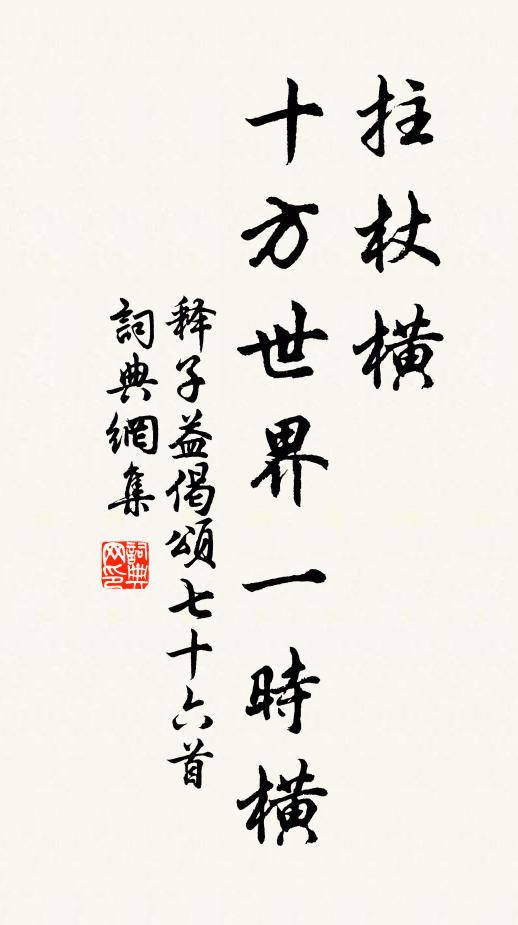 拄杖橫
十方世界一時橫
释子益偈頌七十六首
詞典網集
詞典网印